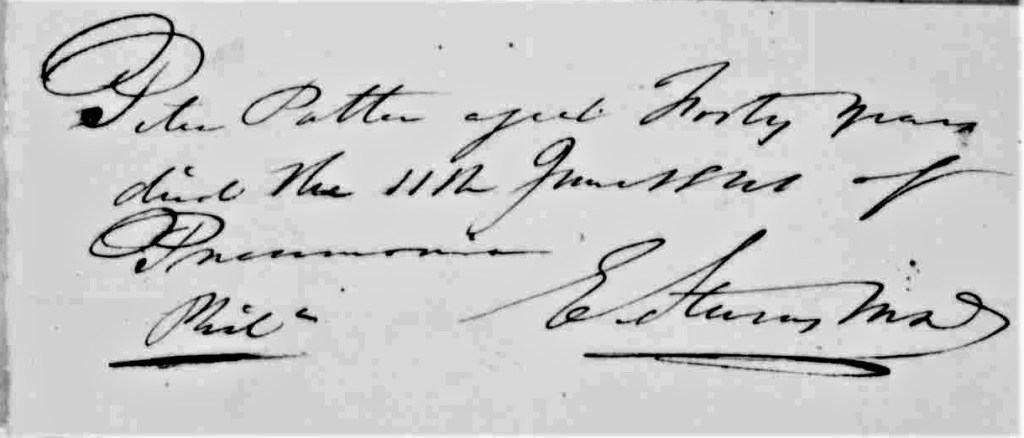 Peter Potter aged Forty years
died the 11th June of
Pneumonia
Phila
E. MD